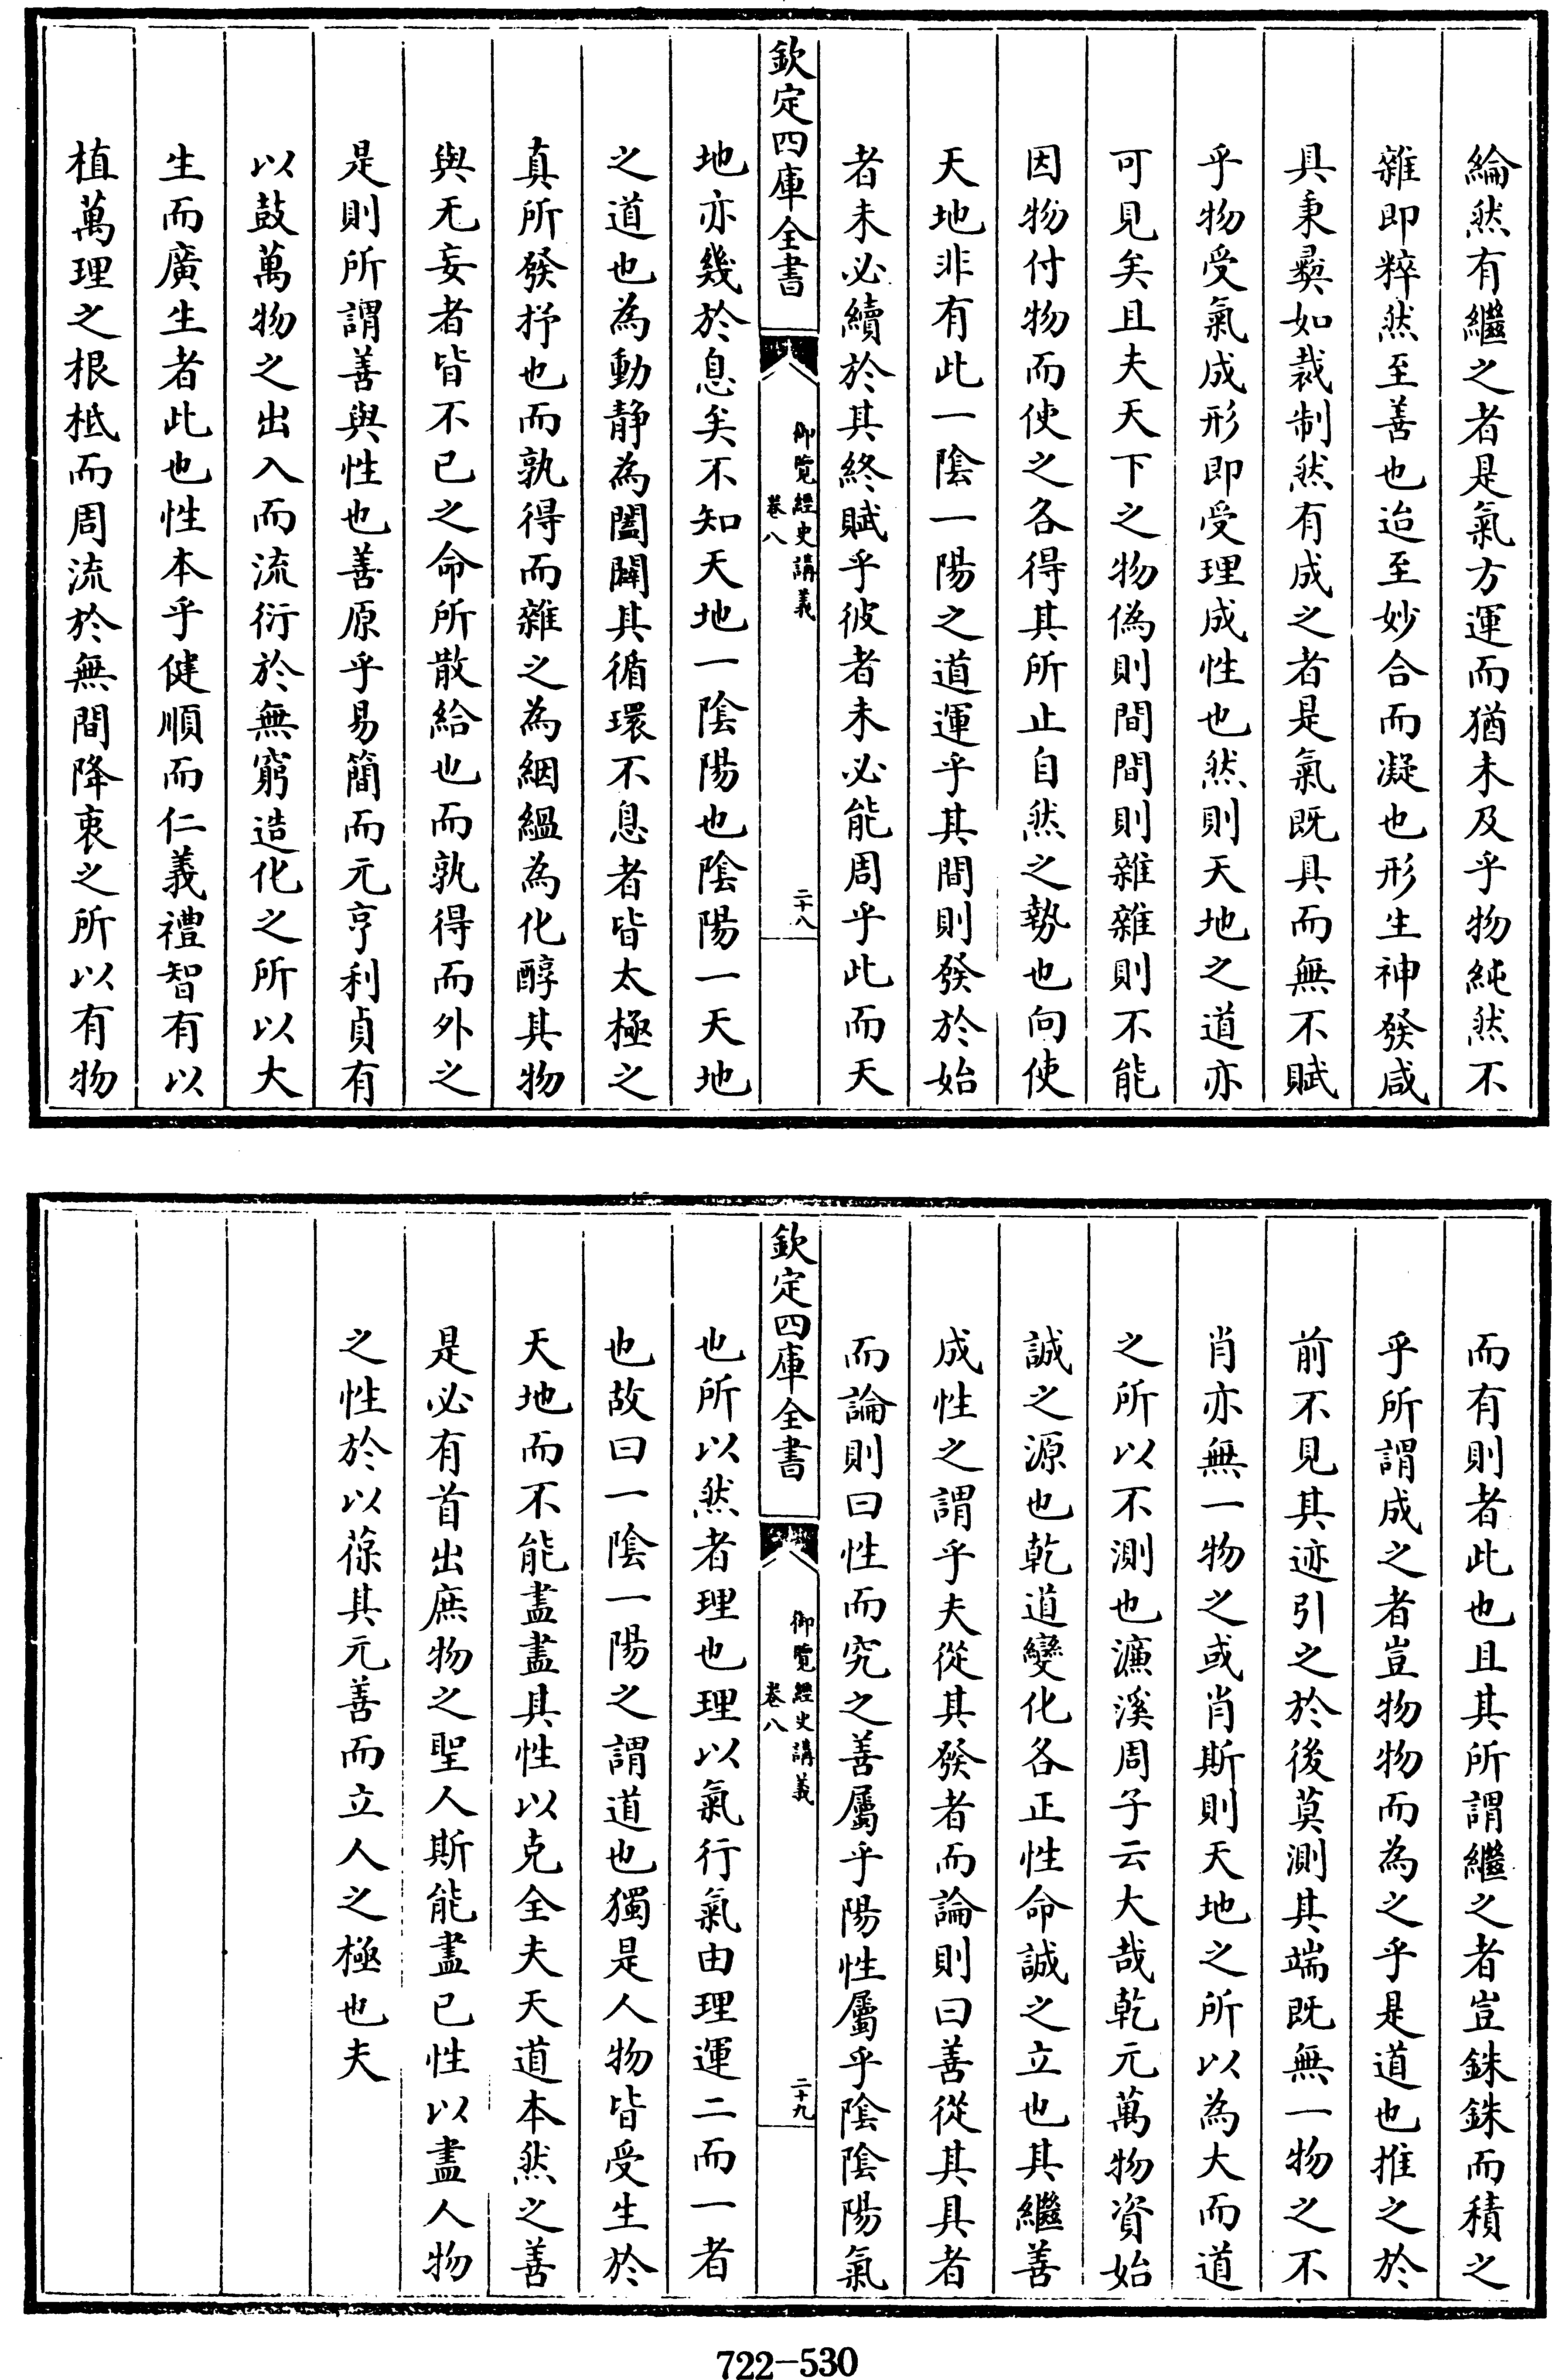 綸然有繼之者是氣方運而猶未及乎物純然不
雜即粹然至善也迨至妙合而凝也形生神發咸
具秉彛如裁制然有成之者是氣既具而無不賦
乎物受氣成形即受理成性也然則天地之道亦
可見矣且夫天下之物偽則間間則雜雜則不能
因物付物而使之各得其所止自然之勢也向使
天地非有此一陰一陽之道運乎其間則發於始
者未必續於其終賦乎彼者未必能周乎此而天
欽定四庫全書
御覽經史講義
卷八
二十八
地亦幾於息矣不知天地一陰陽也陰陽一天地
之道也為動靜為闔闢其循環不息者皆太極之
真所發抒也而孰得而雜之為絪縕為化醇其物
與无妄者皆不已之命所散給也而孰得而外之
是則所謂善與性也善原乎易簡而元亨利貞有
以鼓萬物之出入而流衍於無窮造化之所以大
生而廣生者此也性本乎健順而仁義禮智有以
植萬理之根柢而周流於無間降衷之所以有物
而有則者此也且其所謂繼之者豈銖銖而積之
乎所謂成之者豈物物而為之乎是道也推之於
前不見其迹引之於後莫測其端既無一物之不
肖亦無一物之或肖斯則天地之所以為大而道
之所以不測也濂溪周子云大哉乾元萬物資始
誠之源也乾道變化各正性命誠之立也其繼善
成性之謂乎夫從其發者而論則曰善從其具者
而論則曰性而究之善屬乎陽性屬乎陰陰陽氣
欽定四庫全書
御覽經史講義
卷八
二十九
也所以然者理也理以氣行氣由理運二而一者
也故曰一陰一陽之謂道也獨是人物皆受生於
天地而不能盡盡其性以克全夫天道本然之善
是必有首出庶物之聖人斯能盡已性以盡人物
之性於以葆其元善而立人之極也夫
722-530